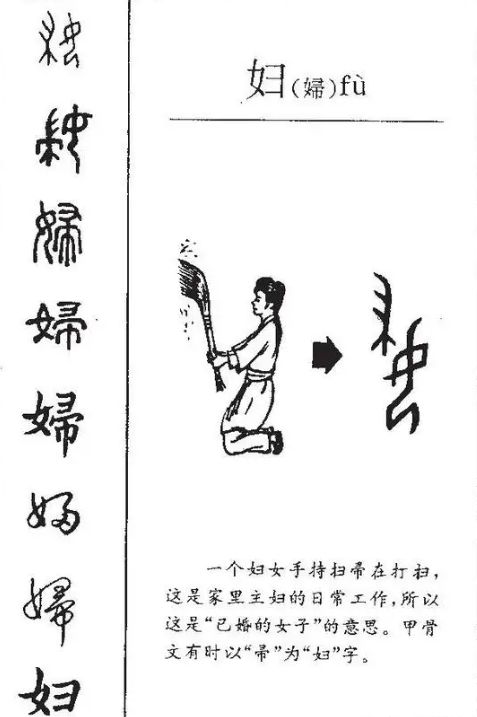 妇(婦)fù
一个妇女手持扫帚在打扫,
这是家里主妇的日常工作,所以
这是“已婚的女子”的意思。甲骨
文有时以“帚”为“妇”字。
婦
婦
婦
婦
婦
妇